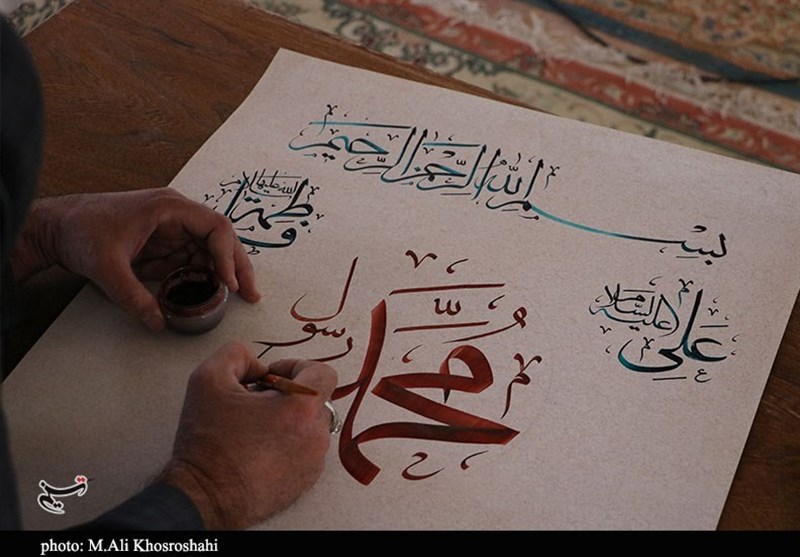 بسم الله الرحمن الرحیم
فاطمة سلام الله علیها
علی علیه السلام
محمد رسول الله
تسنیم
photo: M.Ali Khosroshahi